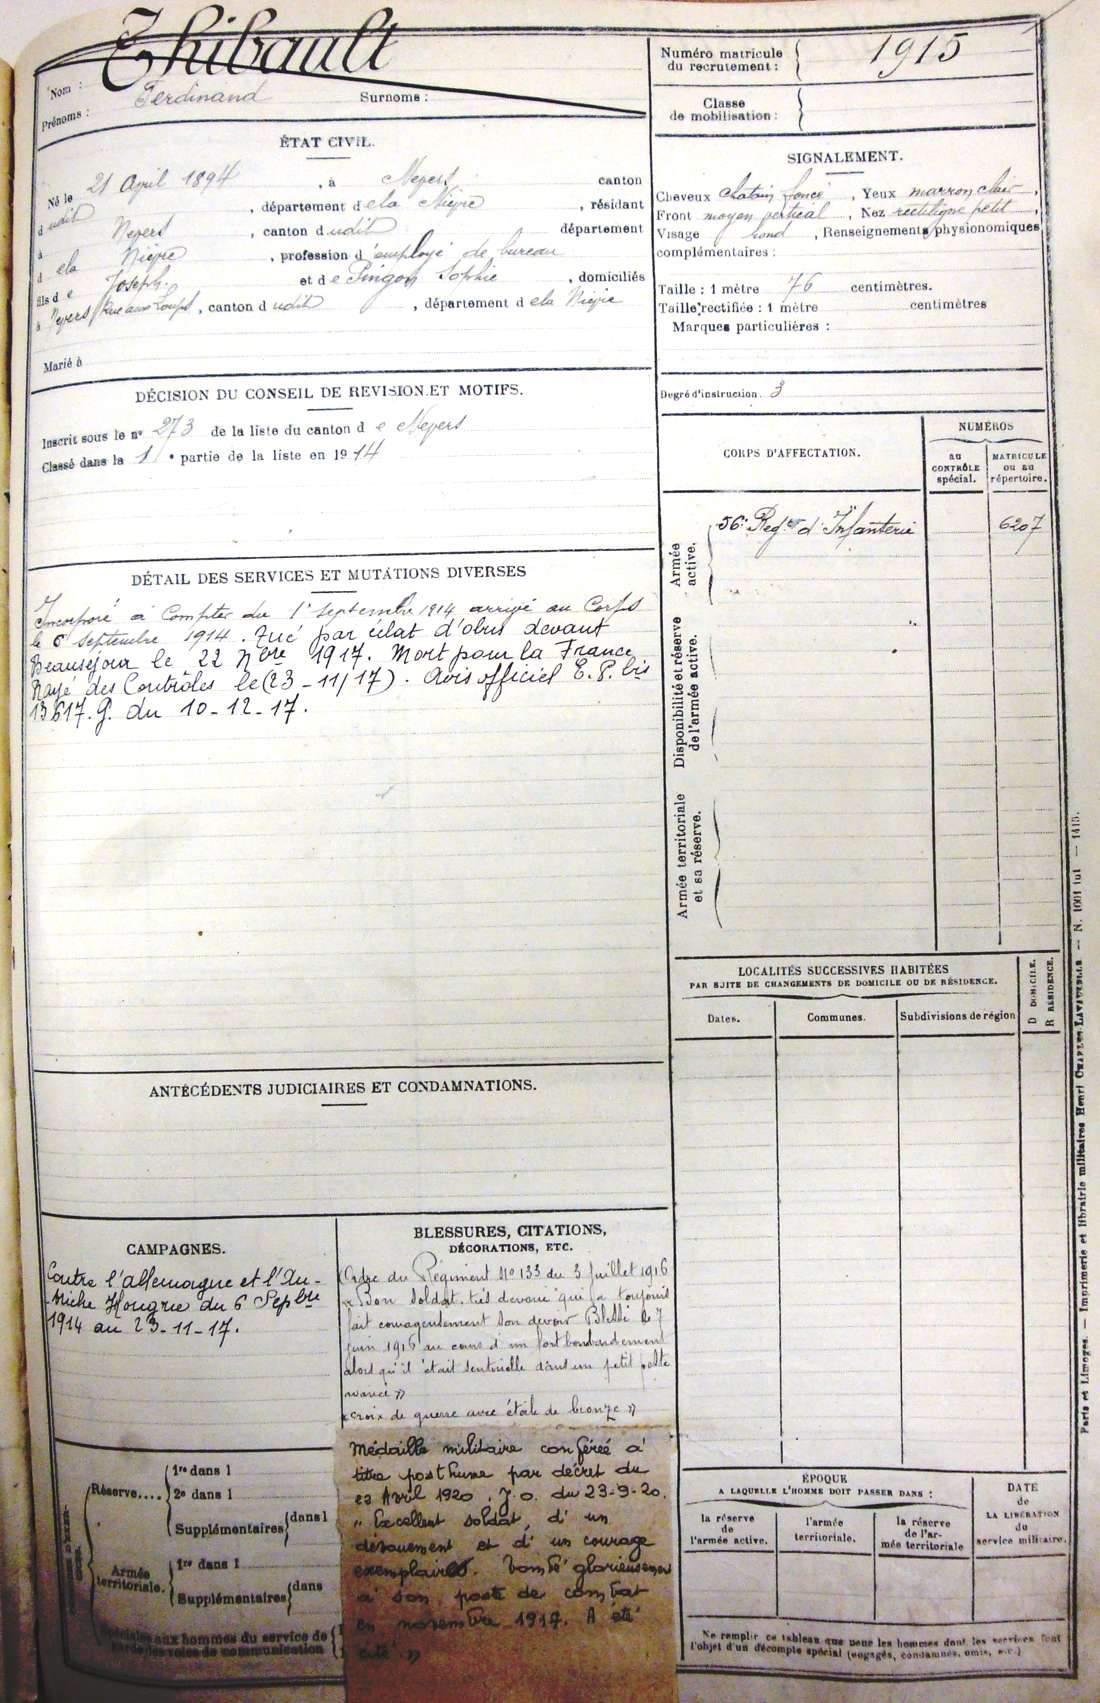 Nom : Thibault
Prénoms : Ferdinand Surnoms :
Numéro matricule du recrutement : 1915
Classe de mobilisation :
ÉTAT CIVIL.
Né le 21 April 1894, à Nevers canton
dudit, département de la Nièvre, résidant
à Nevers, canton dudit département
de la Nièvre, profession d'employé de bureau
fils de Joseph. et de Pingon Sophie, domiciliés
à Nevers, Rue aux Loups, canton dudit, département de la Nièvre
Marié à
SIGNALEMENT.
Cheveux chatain foncé, Yeux marron clair,
Front moyen vertical, Nez rectiligne petit,
Visage rond, Renseignements physionomiques
complémentaires :
Taille : 1 mètre 76 centimètres.
Taille rectifiée : 1 mètre centimètres
Marques particulières :
Degré d'instruction. 3
DÉCISION DU CONSEIL DE REVISION ET MOTIFS.
Inscrit sous le nº 273 de la liste du canton de Nevers
Classé dans la 1 partie de la liste en 1914
CORPS D'AFFECTATION.
NUMÉROS
au CONTRÔLE spécial.
MATRICULE ou au répertoire.
Armée active.
56e Regt d'Infanterie 6207
Disponibilité et réserve de l'armée active.
Armée territoriale et sa réserve.
DÉTAIL DES SERVICES ET MUTATIONS DIVERSES
Incorporé à compter du 1er septembre 1914 arrivé au Corps
le 6 septembre 1914. Tué par éclat d'obus devant
Beauséjour le 22 Nbre 1917. Mort pour la France
Rayé des Contrôles le (23-11/17). Avis officiel E.P. bis
13617.G. du 10-12-17.
LOCALITÉS SUCCESSIVES HABITÉES
PAR SUITE DE CHANGEMENTS DE DOMICILE OU DE RÉSIDENCE.
Dates.
Communes.
Subdivisions de région
D DOMICILE.
R RÉSIDENCE.
ANTÉCÉDENTS JUDICIAIRES ET CONDAMNATIONS.
CAMPAGNES.
Contre l'allemagne et l'Au-
-triche Hongrie du 6 Sepbre
1914 au 23-11-17.
BLESSURES, CITATIONS,
DÉCORATIONS, ETC.
Ordre du Régiment Nº 133 du 3 Juillet 1916
« Bon soldat, très dévoué qui a toujours
fait courageusement son devoir Blessé le 7
juin 1916 au cours d'un fort bombardement
alors qu'il était sentinelle dans un petit poste
avancé »
« croix de guerre avec étoile de bronze »
Médaille militaire conférée à
titre posthume par décret du
22 Avril 1920. J.O. du 23-9-20.
« Excellent soldat, d'un
dévouement et d'un courage
exemplaires. Tombé glorieusement
à son poste de combat
en novembre 1917. A été
cité »
Réserve....
1re dans l
2e dans l
Supplémentaires dans l
Armée territoriale.
1re dans l
Supplémentaires dans
Spéciales aux hommes du service de
garde des voies de communication
ÉPOQUE
A LAQUELLE L'HOMME DOIT PASSER DANS :
la réserve de l'armée active.
l'armée territoriale.
la réserve de l'armée territoriale
DATE de LA LIBÉRATION du service militaire.
Ne remplir ce tableau que pour les hommes dont les services font
l'objet d'un décompte spécial (engagés, condamnés, omis, etc.)
Paris et Limoges. — Imprimerie et librairie militaires Henri CHARLES-LAVAUZELLE